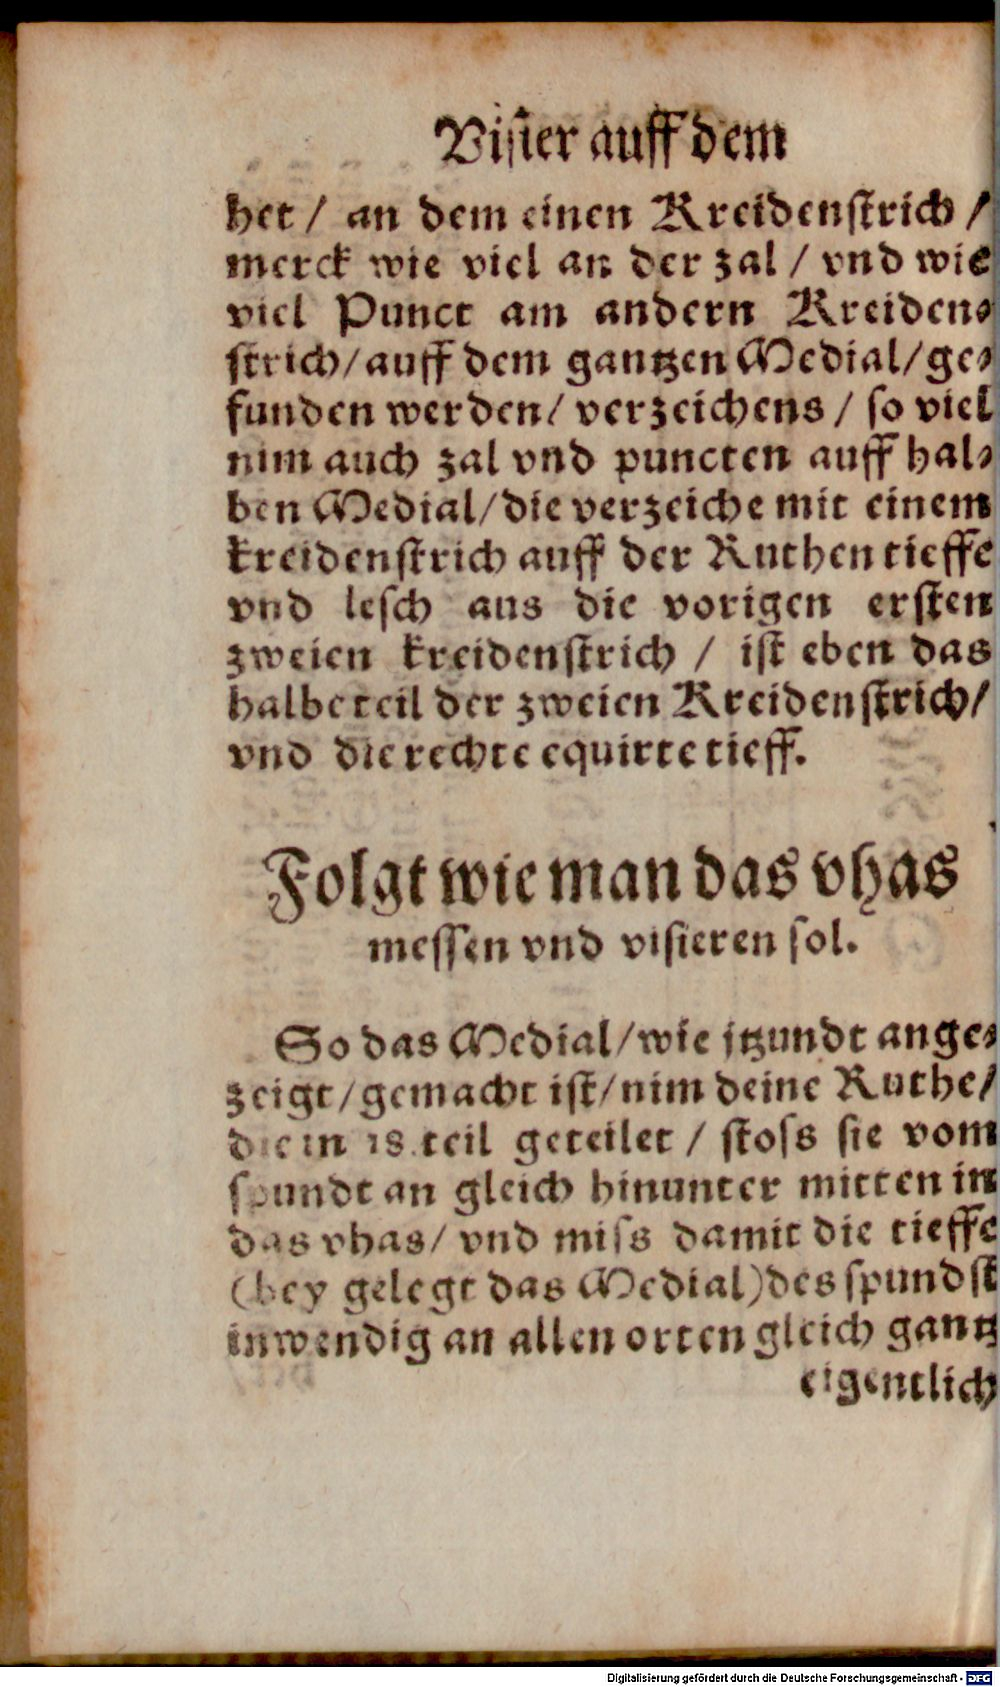 Visier auff dem
het / an dem einen Kreidenstrich /
merck wie viel an der zal / vnd wie
viel Punct am andern Kreiden⸗
strich / auff dem gantzen Medial / ge⸗
funden werden / verzeichens / so viel
nim auch zal vnd puncten auff hal⸗
ben Medial / die verzeiche mit einem
kreidenstrich auff der Ruthen tieffe
vnd lesch aus die vorigen ersten
zweien kreidenstrich / ist eben das
halbe teil der zweien Kreidenstrich /
vnd die rechte equirte tieff.
Folgt wie man das vhas
messen vnd visieren sol.
So das Medial / wie jtzundt ange⸗
zeigt / gemacht ist / nim deine Ruthe /
die in 18. teil geteilet / stoss sie vom
spundt an gleich hinunter mitten in
das vhas / vnd miss damit die tieffe
(bey gelegt das Medial) des spundst
inwendig an allen orten gleich gantz
eigentlich
Digitalisierung gefördert durch die Deutsche Forschungsgemeinschaft - DFG